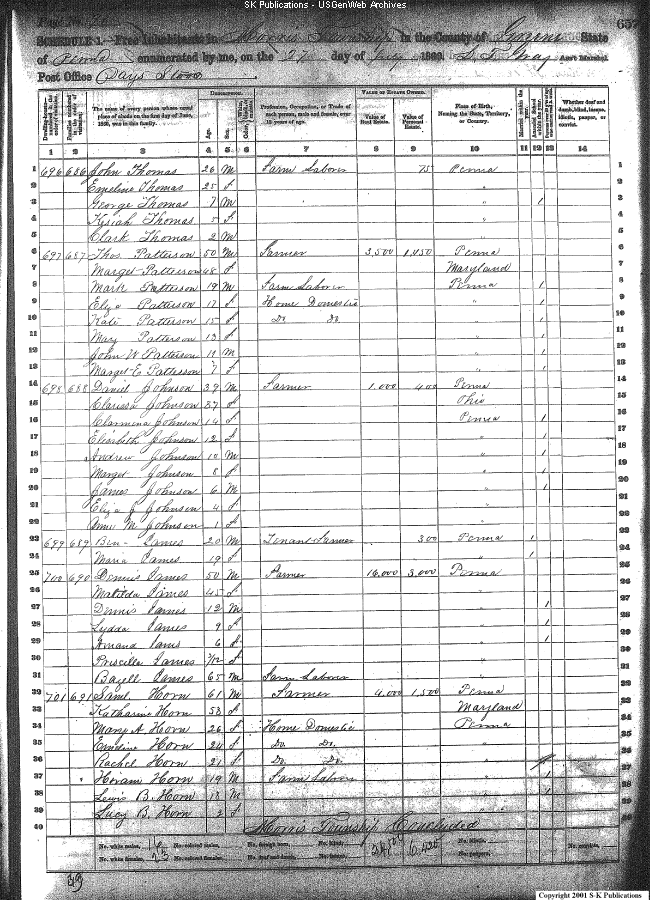 SK Publications - USGenWeb Archives
Page No. 657
SCHEDULE 1.—Free Inhabitants in Morris Township in the County of Greene State
of Penna enumerated by me, on the 27 day of July 1860. Ass't Marshal.
Post Office Days Store
Dwelling-houses— numbered in the order of visitation. Families numbered in the order of visitation. The name of every person whose usual place of abode on the first day of June, 1860, was in this family. DESCRIPTION. Age. Sex. Color Profession, Occupation, or Trade of each person, male and female, over 15 years of age. VALUE OF ESTATE OWNED. Value of Real Estate. Value of Personal Estate. Place of Birth, Naming the State, Territory, or Country. Married within the year. Attended School within the year. Whether deaf and dumb, blind, insane, idiotic, pauper, or convict.
1 2 3 4 5 6 7 8 9 10 11 12 13 14
1 696 686 John Thomas 26 M Farm Laborer 75 Penna 1
2 Emeline Thomas 25 f " 2
3 George Thomas 7 M " 1 3
4 Kysiah Thomas 5 f " 4
5 Clark Thomas 2 M " 5
6 697 687 Thos Patterson 50 M Farmer 3,500 1,450 Penna 6
7 Marget Patterson 48 f Maryland 7
8 Mark Patterson 19 M Farm Laborer Penna 1 8
9 Eliza Patterson 17 f Home Domestic " 1 9
10 Kate Patterson 15 f Do Do " 1 10
11 Mary Patterson 13 f " 1 11
12 John W Patterson 11 M " 1 12
13 Marget E Patterson 7 f " 1 13
14 698 688 Daniel Johnson 39 M Farmer 1,000 400 Penna 14
15 Clarissa Johnson 37 f Ohio 15
16 Clarmina Johnson 14 f Penna 1 16
17 Elisabeth Johnson 12 f " 1 17
18 Andrew Johnson 10 M " 1 18
19 Marget Johnson 8 f " 1 19
20 James Johnson 6 M " 1 20
21 Eliza J Johnson 4 f " 21
22 Ann M Johnson 1 f " 22
23 699 689 Ben James 20 M Tenant Farmer 300 Penna 1 23
24 Maria James 19 f " 1 24
25 700 690 Dennis James 50 M Farmer 16,000 3,000 Penna 25
26 Matilda James 45 f " 26
27 Dennis James 12 M " 1 27
28 Lydda James 9 f " 1 28
29 Amand James 6 f " 1 29
30 Priscilla James 7/12 f " 30
31 Bazell James 65 M Farm Laborer " 31
32 701 691 Saml Horn 61 M Farmer 4,000 1,500 Penna 32
33 Katharine Horn 53 f Maryland 33
34 Mary A Horn 26 f Home Domestic Penna 34
35 Emeline Horn 24 f Do Do " 35
36 Rachel Horn 21 f Do Do " 36
37 Horam Horn 19 M Farm Labor " 1 37
38 Lewis B. Horn 13 M " 1 38
39 Lucy B. Horn 2 f " 39
40 Morris Township Concluded
No. white males, No. colored males, No. foreign born, No. blind, No. idiotic, No. convicts,
No. white females, 23 No. colored females, No. deaf and dumb, No. insane, 24,500 6,425 No. paupers,
Copyright 2001 S-K Publications